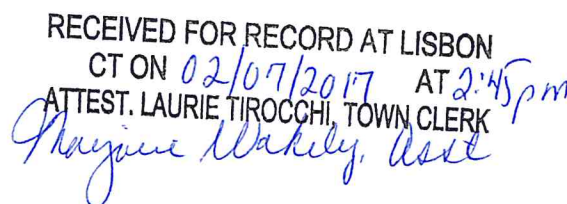 RECEIVED FOR RECORD AT LISBON
CT ON 02/07/2017 AT 2:45pm
ATTEST. LAURIE TIROCCHI, TOWN CLERK
Marjorie Wakely, Asst